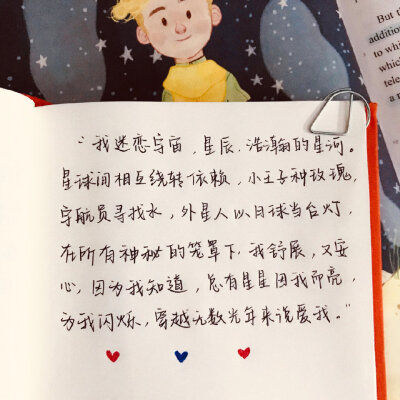 But th
addition
to whi
which
tele
a n
“我迷恋宇宙，星辰，浩瀚的星河。
星球间相互绕转依赖，小王子种玫瑰，
宇航员寻找水，外星人以日球当台灯，
在所有神秘的笼罩下，我舒展，又安
心，因为我知道，总有星星因我而亮，
为我闪烁，穿越无数光年来说爱我。”